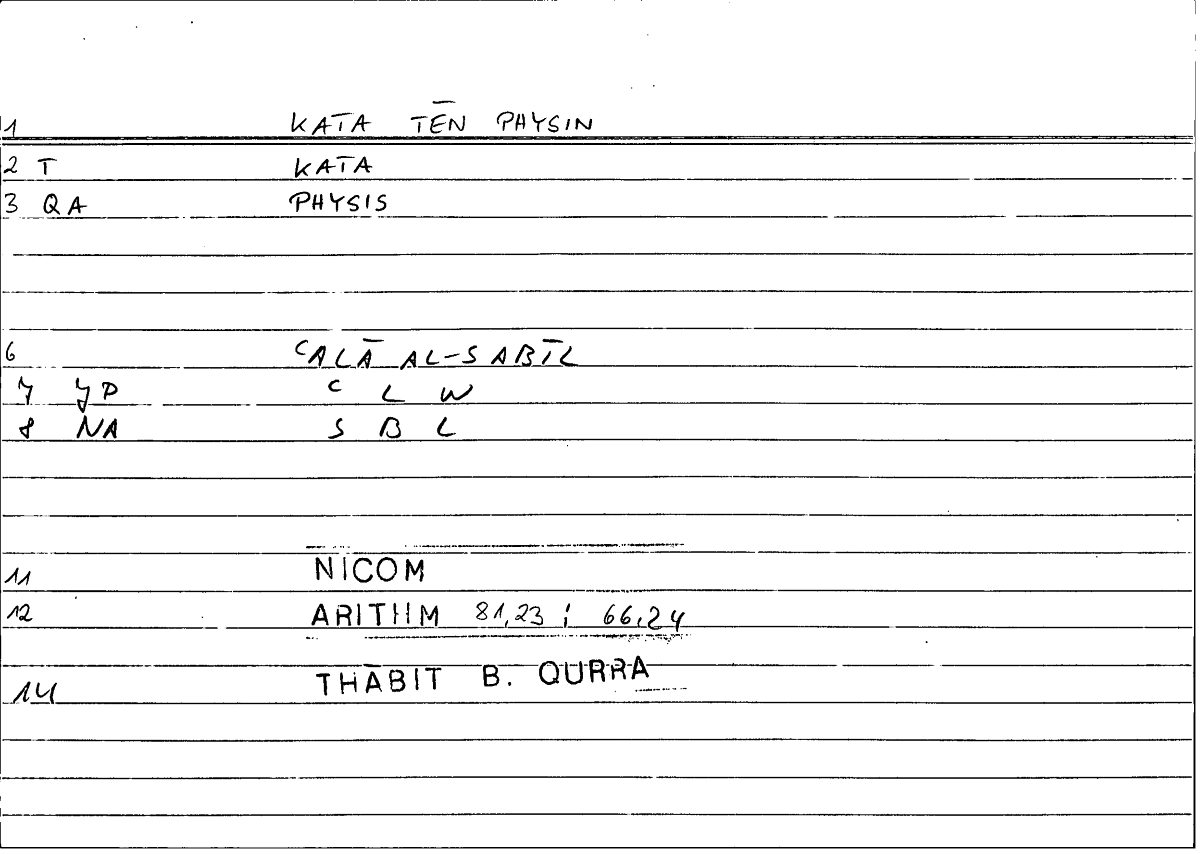 1 KATA TĒN PHYSIN
2 T KATA
3 QA PHYSIS
6 ᶜALĀ AL-SABĪL
7 YP ᶜ L W
8 NA S B L
11 NICOM
12 ARITHM 81,23 ; 66,24
14 THĀBIT B. QURRA